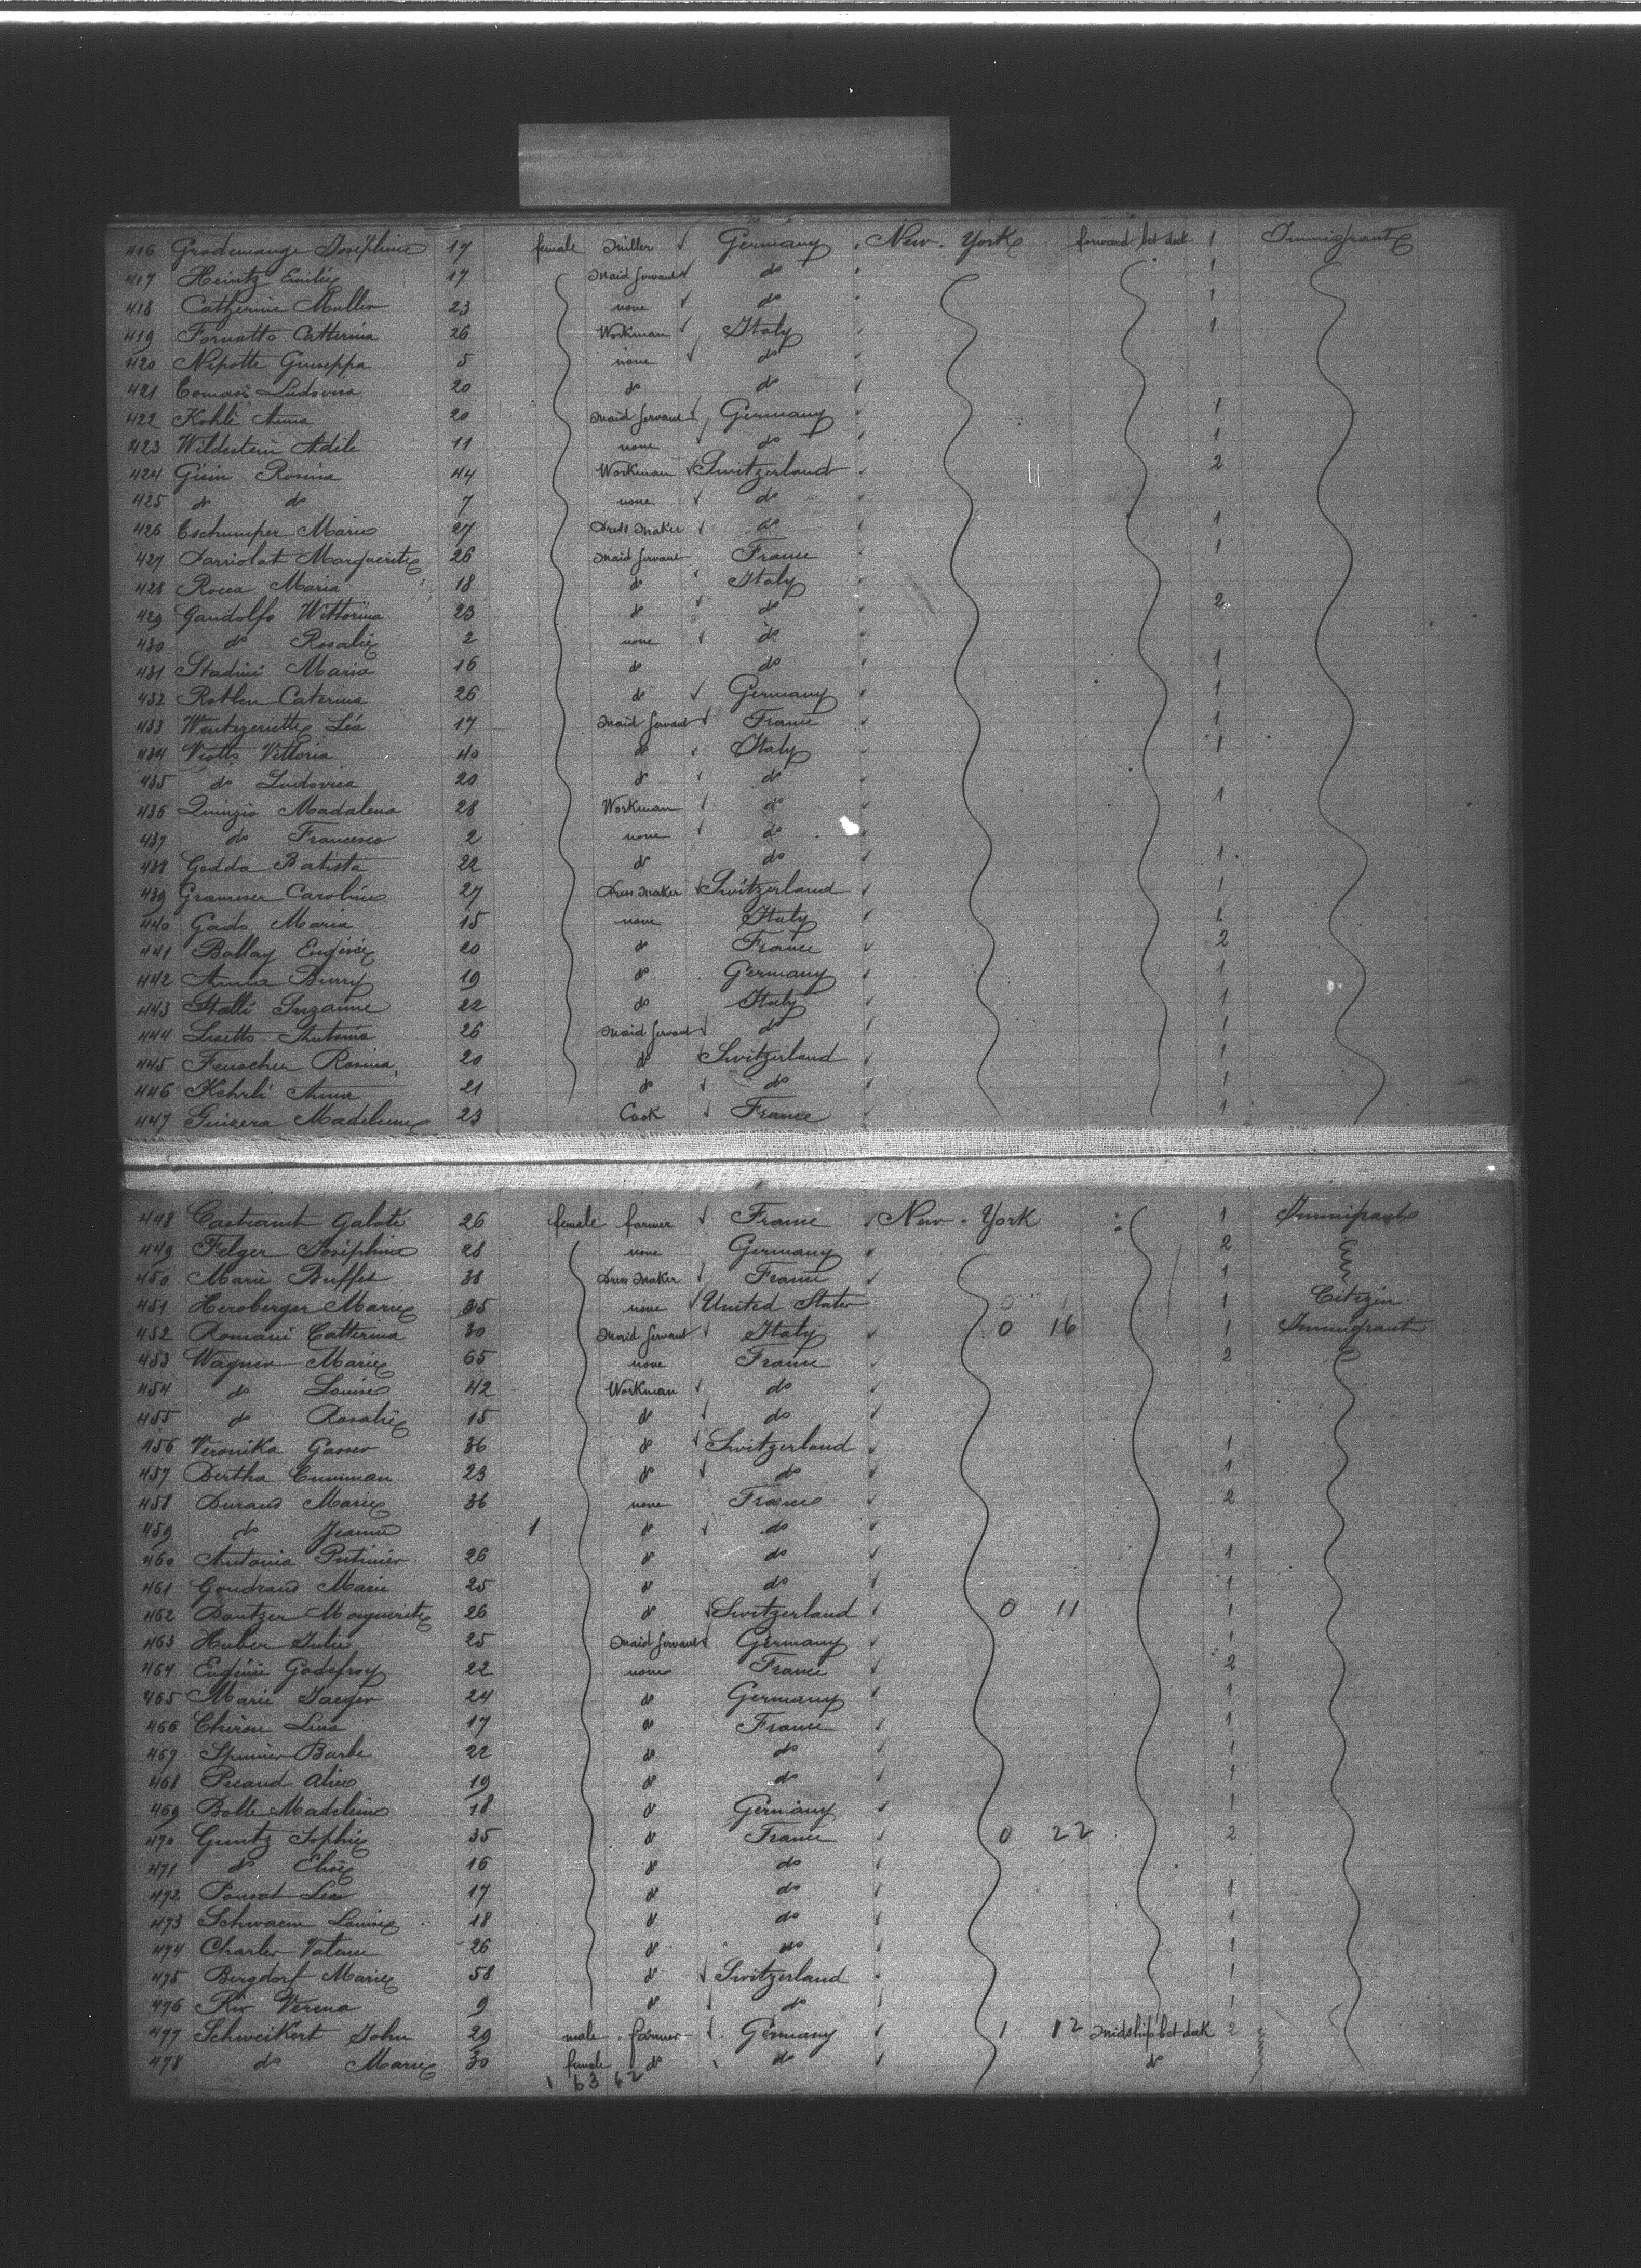 416 Grodemange Joséphine 17 female Miller Germany New-York forward bet deck 1 Immigrant
417 Heintz Emilie 17 Maid servant do 1
418 Catherine Muller 23 none do 1
419 Fornatto Catterina 26 Workman Italy 1
420 Nipotte Giuseppa 5 none do
421 Tomasi Ludovica 20 do do
422 Kohli Anna 20 Maid servant Germany 1
423 Wildestein Adèle 11 none do 1
424 Gisin Rosina 44 Workman Switzerland 2
425 do do 7 none do
426 Eschumper Marie 27 Dress Maker do 1
427 Darriolat Marguerite 26 Maid servant France 1
428 Rocca Maria 18 do Italy
429 Gandolfo Wittorina 23 do do 2
430 do Rosalie 2 none do
431 Stadini Maria 16 do do 1
432 Rothen Caterina 26 do Germany 1
433 Léa 17 Maid servant France 1
434 Viotto Vittoria 40 do Italy 1
435 do Ludovica 20 do do
436 Quinzio Madalena 28 Workman do 1
437 do Francesco 2 none do
438 Gedda Batista 22 do do 1
439 Grameser Caroline 27 Dress Maker Switzerland 1
440 Gado Maria 15 none Italy 1
441 Ballay Eugénie 20 do France 2
442 Anna Burry 19 do Germany 1
443 Stalli Suzanne 22 do Italy 1
444 Lisetto Antonia 26 Maid servant do 1
445 Feuscher Rosina 20 do Switzerland 1
446 Kehrli Anna 21 do do 1
447 Guizera Madeleine 23 Cook France 1
448 Castramt Galoté 26 female farmer France New-York 1 Immigrant
449 Felger Joséphine 28 none Germany 2
450 Marie Buffet 38 Dress Maker France 1
451 Heroberger Marie 35 none United States 1 Citizen
452 Romani Catterina 30 Maid servant Italy 0 16 1 Immigrant
453 Wagner Marie 65 none France 2
454 do Louise 42 Workman do
455 do Rosalie 15 do do
456 Veronika Gasser 36 do Switzerland 1
457 Bertha Cunnman 23 do do 1
458 Durand Marie 36 none France 2
459 do Jeanne 1 do do
460 Antonia Putinier 26 do do 1
461 Goudrand Marie 25 do do 1
462 Dantzer Marguerite 26 do Switzerland 0 11 1
463 Huber Julie 25 Maid servant Germany 1
464 Eugénie Godefroy 22 none France 2
465 Marie Jaeger 24 do Germany 1
466 Chiron Lina 17 do France 1
467 Barbe 22 do do 1
468 Picand Aline 19 do do 1
469 Bolle Madeleine 18 do Germany 1
470 Guntz Sophie 35 do France 0 22 2
471 do Elise 16 do do
472 Ponsot Léa 17 do do 1
473 Schwaem Louise 18 do do 1
474 Charles Vatenn 26 do do 1
475 Bergdorf Marie 58 do Switzerland 1
476 Verena 9 do do 1
477 Schweikert John 29 male farmer Germany 1 12 midship bet deck 2
478 do Marie 30 female do do do
1 63 62